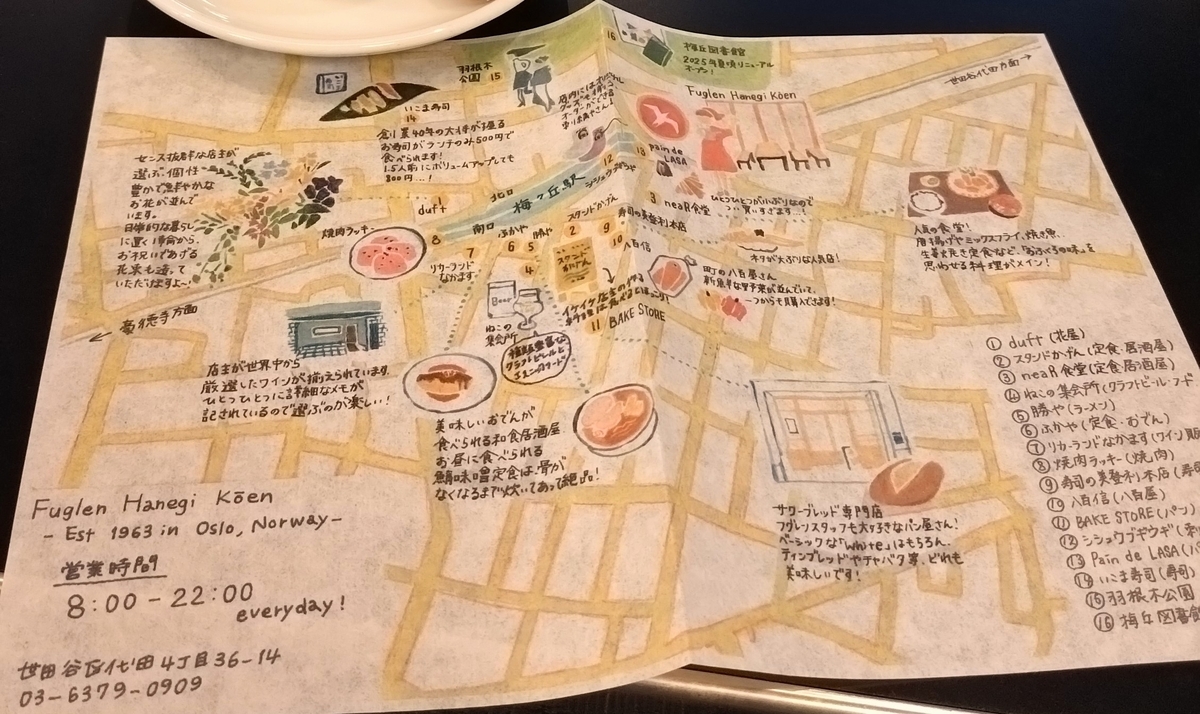 羽根木
公園 15
16
梅丘図書館
2025年夏頃リニューアル
オープン!
世田谷代田方面→
いこま寿司
14
創業40年の大将が握る
お寿司がランチのみ500円で
食べられます!
1.5人前にボリュームアップしても
800円…!
Fuglen Hanegi Kōen
13 pain de
LASA
12
ひとつひとつが小ぶりなので
つい買いすぎます…!
センス抜群な店主が
選ぶ個性
豊かで鮮やかな
お花が並んで
います。
日常的な暮らし
に置く
お祝いであげる
花束も造って
いただけますよ~!
duft
北口
梅ヶ丘駅
南口
焼肉ラッキー
8
7
リカーランド
なかます
ふかや
6
5
勝や
4
スタンドかげん
2
9
寿司の美登利本店
3 neaR食堂
10
八百信
スタンド
かげん
ネタが大ぶりな人気店!
人気の食堂!
唐揚げやミックスフライ、焼き魚、
生姜焼き定食など、「おふくろの味」を
思わせる料理がメイン!
町の八百屋さん
新鮮な野菜が並んでいて、
一つからも購入できます!
11 BAKE STORE
Beer
ねこの
集会所
種類豊富な
クラフトビールと
←豪徳寺方面
店主が世界中から
厳選したワインが揃えられています。
ひとつひとつに詳細なメモが
記されているので選ぶのが楽しい!
美味しいおでんが
食べられる和食居酒屋
お昼に食べられる
鯖味噌定食は、骨が
なくなるまで炊いてあって絶品!
サワーブレッド専門店
フグレンスタッフも大好きなパン屋さん!
ベーシックな「white」はもちろん、
ティンブレッドやチャバタ等、どれも
美味しいです!
Fuglen Hanegi Kōen
- Est 1963 in Oslo, Norway -
営業時間
8:00 - 22:00
everyday!
世田谷区代田4丁目36-14
03-6379-0909
① duft (花屋)
② スタンドかげん(定食・居酒屋)
③ neaR食堂(定食・居酒屋)
④ ねこの集会所(クラフトビール・フード
⑤ 勝や(ラーメン)
⑥ ふかや(定食・おでん)
⑦ リカーランドなかます(ワイン販
⑧ 焼肉ラッキー(焼肉)
⑨ 寿司の美登利本店(寿司
⑩ 八百信(八百屋)
⑪ BAKE STORE(パン)
⑫ シショウブギウギ(
⑬ Pain de LASA(パ
⑭ いこま寿司(寿司)
⑮ 羽根木公園
⑯ 梅丘図書館